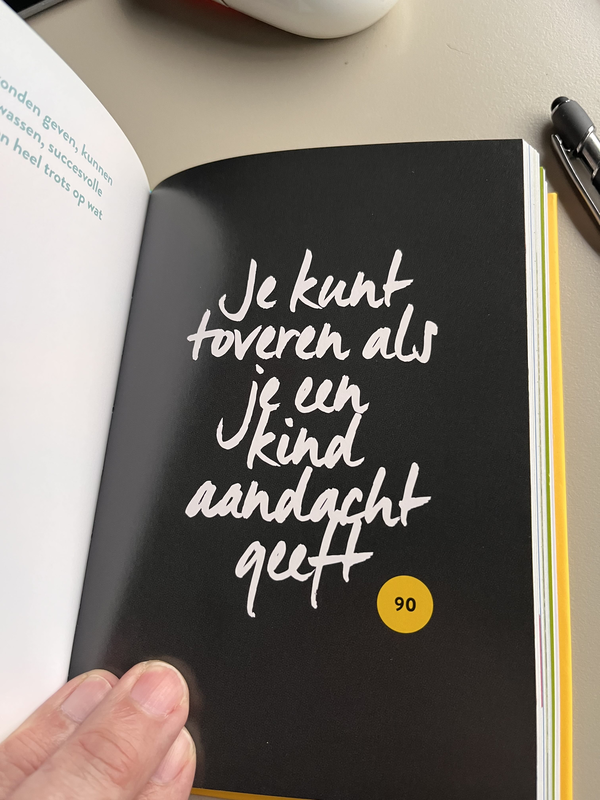 onden geven, kunnen
wassen, succesvolle
n heel trots op wat
Je kunt
toveren als
je een
kind
aandacht
geeft
90